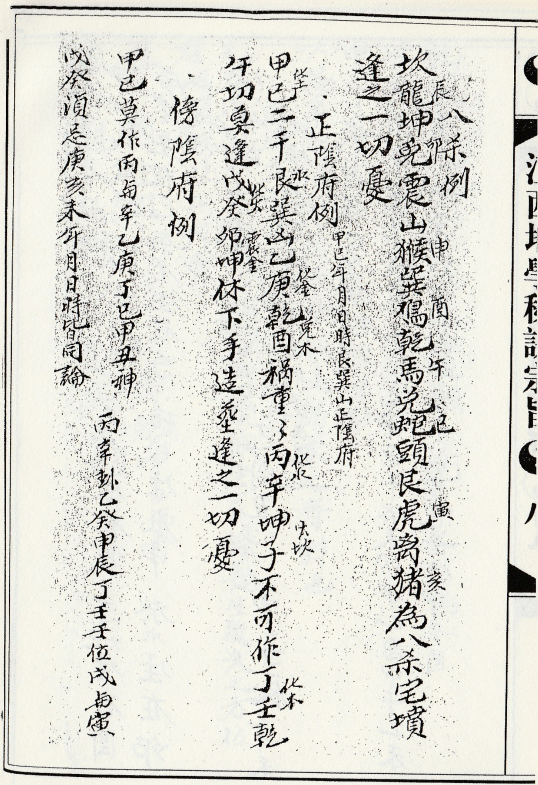 江西地學秘訣宗旨 八
八杀例
坎龍坤兔震山猴巽鳮乾馬兑蛇頭艮虎离猪為八杀宅墳
辰 卯 申 酉 午 巳 寅 亥
逢之一切憂
正陰府例 甲己年月日時艮巽山正陰府
甲己二干艮巽凶乙庚乾酉祸重々丙辛坤子不可作丁壬乾
化土 水 化金 兑木 化水 火坎 化木
午切莫逢戊癸卯坤休下手造塟逢之一切憂
化火 震金
傍陰府例
甲己莫作丙与辛乙庚丁巳甲丑神 丙辛卦乙癸申辰丁壬壬位戌与寅
戊癸須忌庚亥未年月日時皆同論